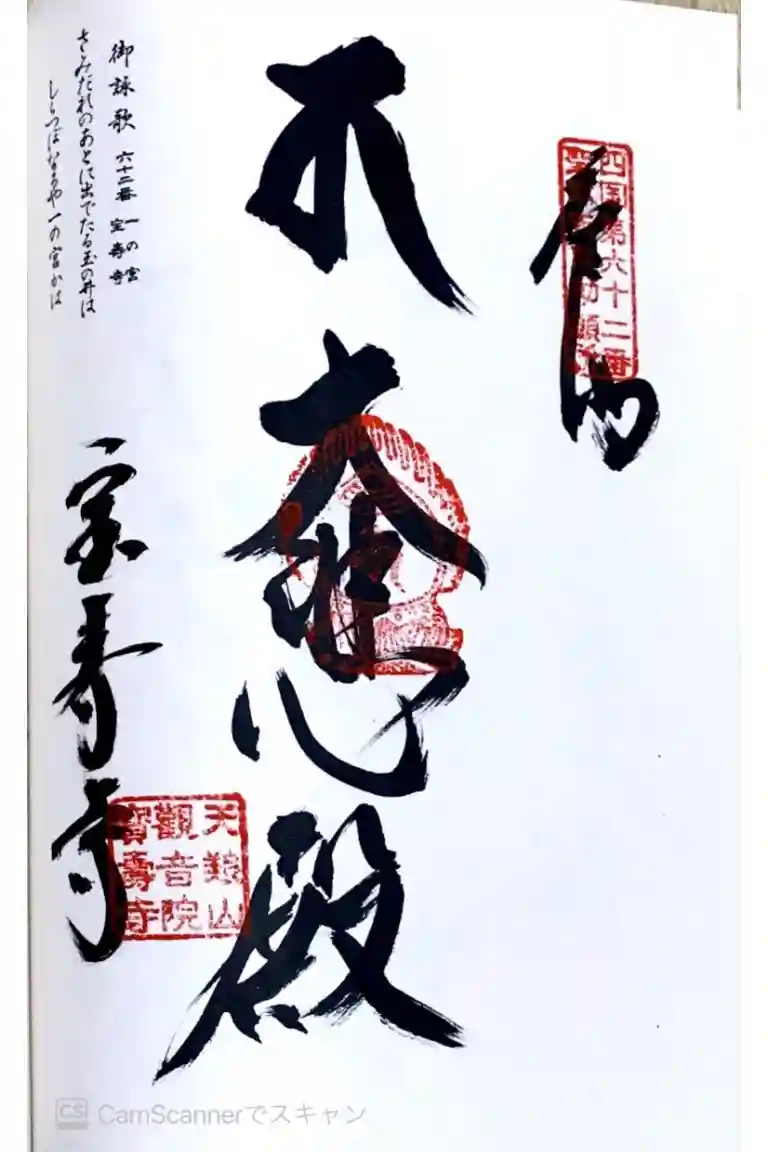 奉納
四国第六十二番
大悲殿
宝寿寺
天養山
觀音院
寶壽寺
御詠歌 六十二番 一の宮 宝寿寺
さみだれのあとに出でたる玉の井は
しらつぼなるや一の宮かは
CS CamScannerでスキャン